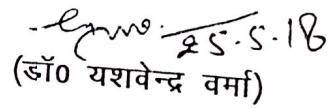 25.5.18
(डॉ0 यशवेन्द्र वर्मा)